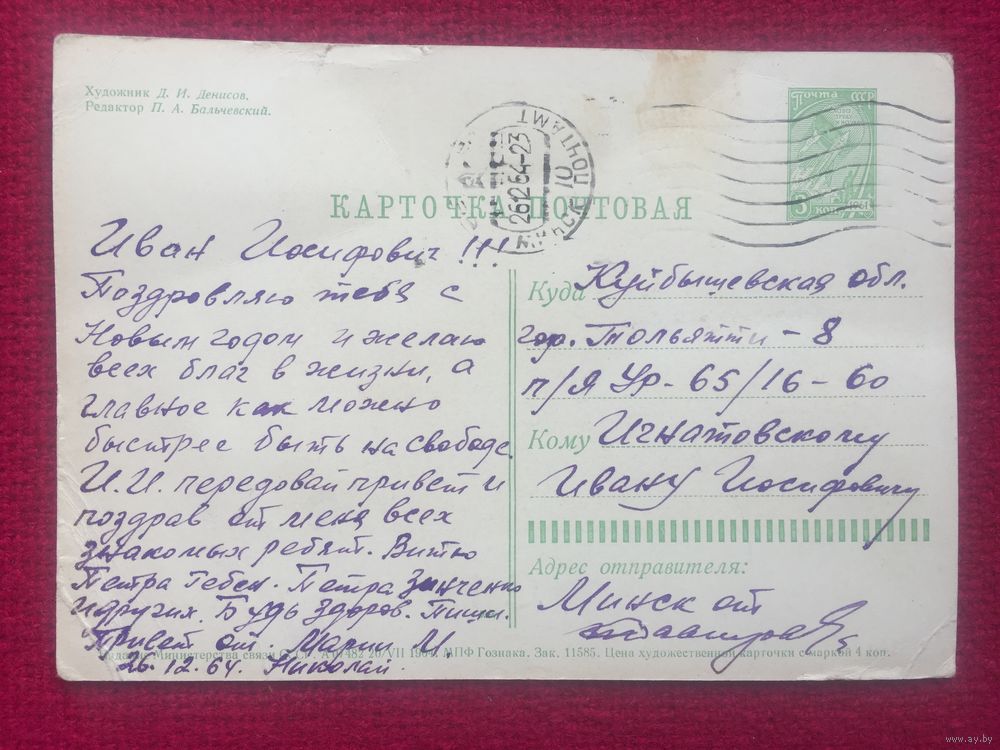 Художник Д. И. Денисов.
Редактор П. А. Бальчевский.
Почта СССР
3 коп. 1961
МИНСК 10 ПОЧТАМТ
261264-23
КАРТОЧКА ПОЧТОВАЯ
Иван Иосифович!!!
Поздровляю тебя с
Новым годом и желаю
всех благ в жизни, а
главное как можно
быстрее быть на свободе.
И.И. передовай привет и
поздрав от меня всех
знакомых ребят. Витю
Петра Гебен. Петра Зинченко
и других. Будь здоров. Пиши.
Привет от. Марии М.
26.12.64. Николай
Куда Куйбышевская обл.
гор. Тольятти - 8
п/я Ур-65/16-60
Кому Игнатовскому
Ивану Иосифовичу
Адрес отправителя:
Минск от
Издание Министерства связи СССР. А 07482 20/VII 1964. МПФ Гознака. Зак. 11585. Цена художественной карточки с маркой 4 коп.
www.ay.by